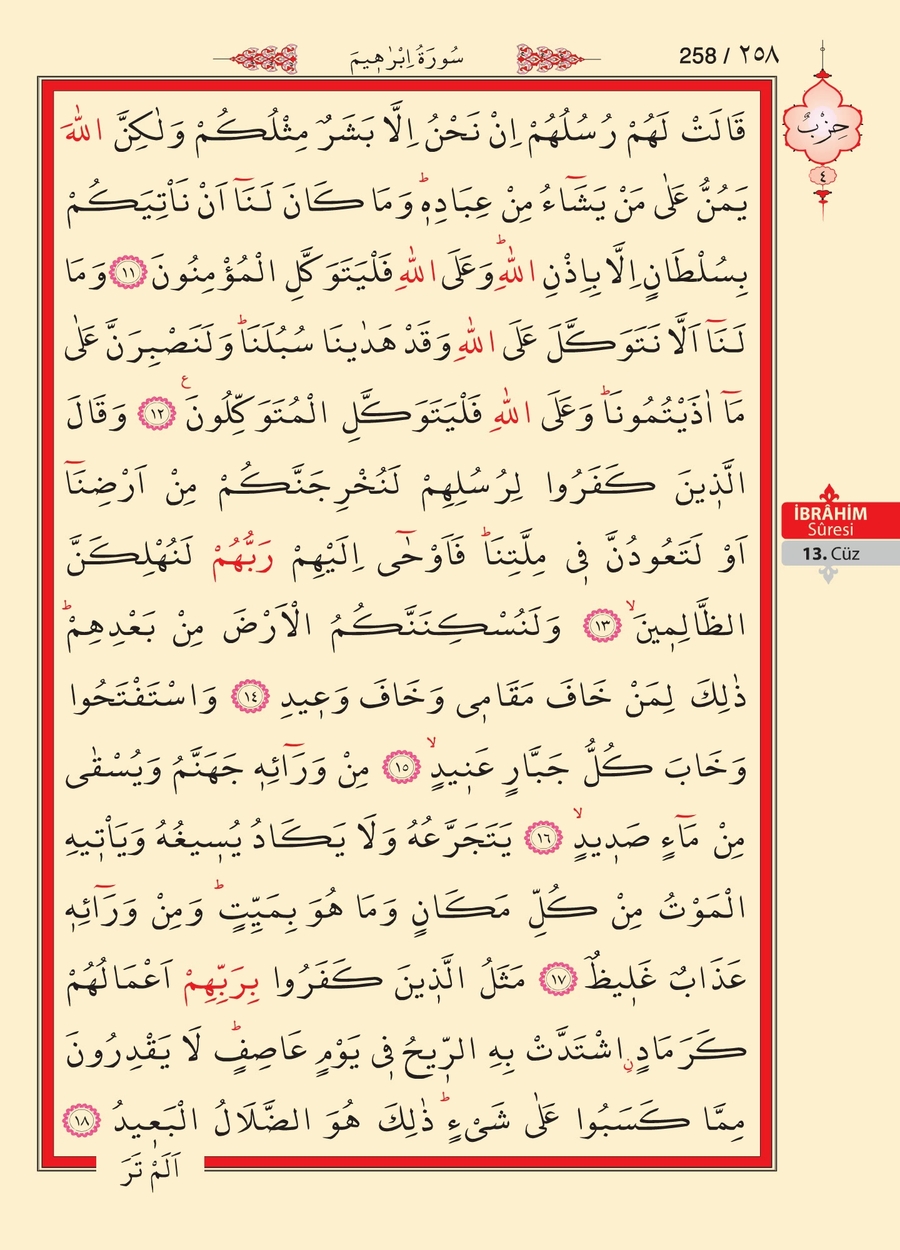 سُورَةُ اِبْرٰهٖيمَ
258 / ٢٥٨
حِزْبٌ
٤
قَالَتْ لَهُمْ رُسُلُهُمْ اِنْ نَحْنُ اِلَّا بَشَرٌ مِثْلُكُمْ وَلٰكِنَّ اللّٰهَ
يَمُنُّ عَلٰى مَنْ يَشَٓاءُ مِنْ عِبَادِهٖؕ وَمَا كَانَ لَنَٓا اَنْ نَأْتِيَكُمْ
بِسُلْطَانٍ اِلَّا بِاِذْنِ اللّٰهِؕ وَعَلَى اللّٰهِ فَلْيَتَوَكَّلِ الْمُؤْمِنُونَ ﴿١١﴾ وَمَا
لَنَٓا اَلَّا نَتَوَكَّلَ عَلَى اللّٰهِ وَقَدْ هَدٰينَا سُبُلَنَاؕ وَلَنَصْبِرَنَّ عَلٰى
مَٓا اٰذَيْتُمُونَاؕ وَعَلَى اللّٰهِ فَلْيَتَوَكَّلِ الْمُتَوَكِّلُونَ ع ﴿١٢﴾ وَقَالَ
الَّذٖينَ كَفَرُوا لِرُسُلِهِمْ لَنُخْرِجَنَّكُمْ مِنْ اَرْضِنَٓا
اَوْ لَتَعُودُنَّ فٖى مِلَّتِنَاؕ فَاَوْحٰٓى اِلَيْهِمْ رَبُّهُمْ لَنُهْلِكَنَّ
الظَّالِمٖينَۙ ﴿١٣﴾ وَلَنُسْكِنَنَّكُمُ الْاَرْضَ مِنْ بَعْدِهِمْؕ
ذٰلِكَ لِمَنْ خَافَ مَقَامٖى وَخَافَ وَعٖيدِ ﴿١٤﴾ وَاسْتَفْتَحُوا
وَخَابَ كُلُّ جَبَّارٍ عَنٖيدٍۙ ﴿١٥﴾ مِنْ وَرَٓائِهٖ جَهَنَّمُ وَيُسْقٰى
مِنْ مَٓاءٍ صَدٖيدٍۙ ﴿١٦﴾ يَتَجَرَّعُهُ وَلَا يَكَادُ يُسٖيغُهُ وَيَأْتٖيهِ
الْمَوْتُ مِنْ كُلِّ مَكَانٍ وَمَا هُوَ بِمَيِّتٍؕ وَمِنْ وَرَٓائِهٖ
عَذَابٌ غَلٖيظٌ ﴿١٧﴾ مَثَلُ الَّذٖينَ كَفَرُوا بِرَبِّهِمْ اَعْمَالُهُمْ
كَرَمَادٍنِ اشْتَدَّتْ بِهِ الرّٖيحُ فٖى يَوْمٍ عَاصِفٍؕ لَا يَقْدِرُونَ
مِمَّا كَسَبُوا عَلٰى شَیْءٍؕ ذٰلِكَ هُوَ الضَّلَالُ الْبَعٖيدُ ﴿١٨﴾
اَلَمْ تَرَ
İBRÂHİM
Sûresi
13. Cüz